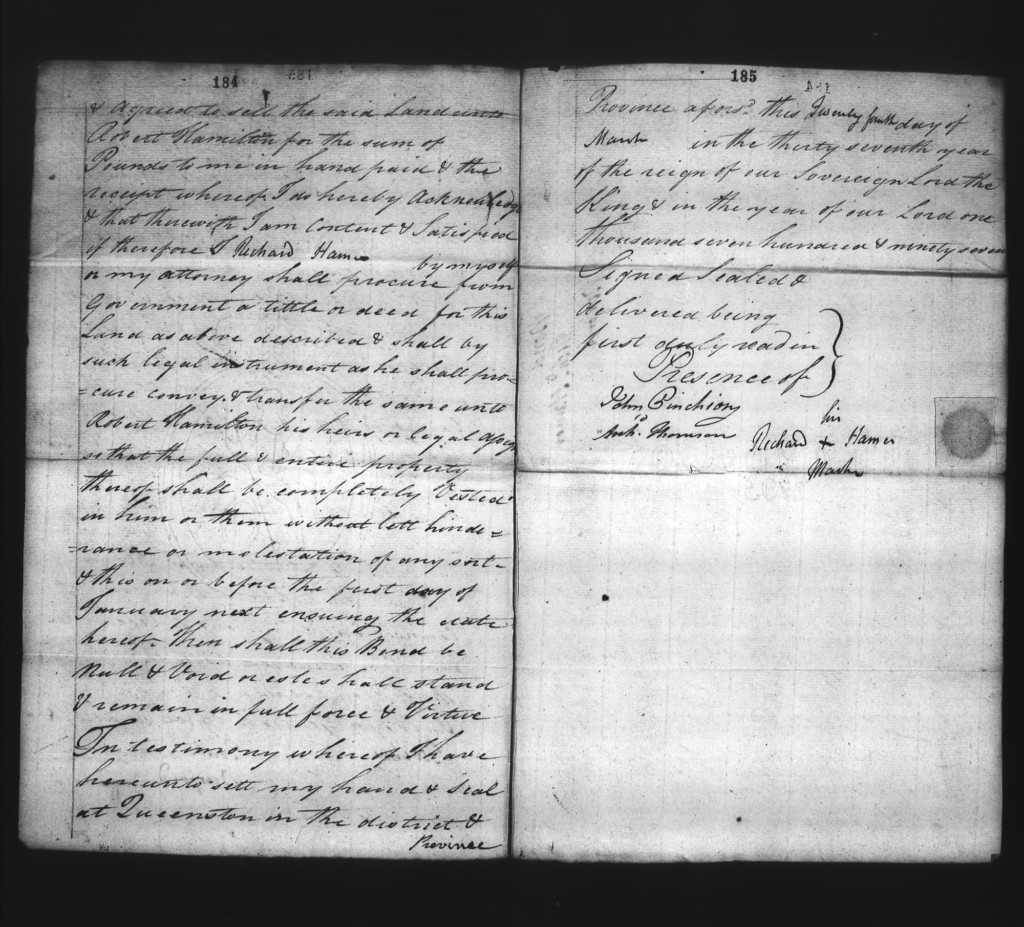 184
& Agreed to sell the said Land unto
Robert Hamilton for the sum of
Pounds to me in hand paid & the
receipt whereof I do hereby Acknowledg
& that therewith I am Content & Satisfied
if therefore I Richard Hamer by myself
or my attorney shall procure from
Government a tittle or deed for this
Land as above described & shall by
such legal instrument as he shall pro=
=cure convey & transfer the same unto
Robert Hamilton his heirs or legal Assigns
so that the full & entire property
thereof shall be completely Vested
in him or them without lett hinde=
=rance or molestation of any sort
& this on or before the first day of
January next ensuing the date
hereof. Then shall this Bond be
Null & Void or else shall stand
& remain in full force & Virtue
In testimony whereof I have
hereunto sett my hand & seal
at Queenston in the district &
Province
185
Province afors.d this Twenty fourth day of
March in the thirty seventh year
of the reign of our Sovereign Lord the
King & in the year of our Lord one
thousand seven hundred & ninety seven
Signed Sealed &
delivered being
first duly read in
Presence of
John
Arch.d Thomson
his
Richard + Hamer
Mark